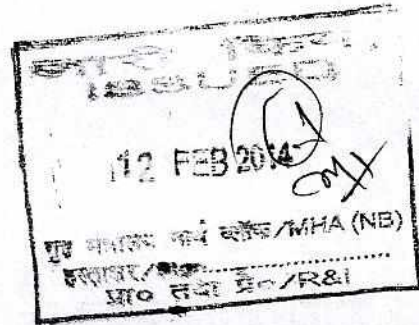 जारी किया
ISSUED
12 FEB 2014
गृह मंत्रालय नार्थ ब्लॉक/MHA (NB)
हस्ताक्षर/
प्रा० तथा प्रे०/R&I